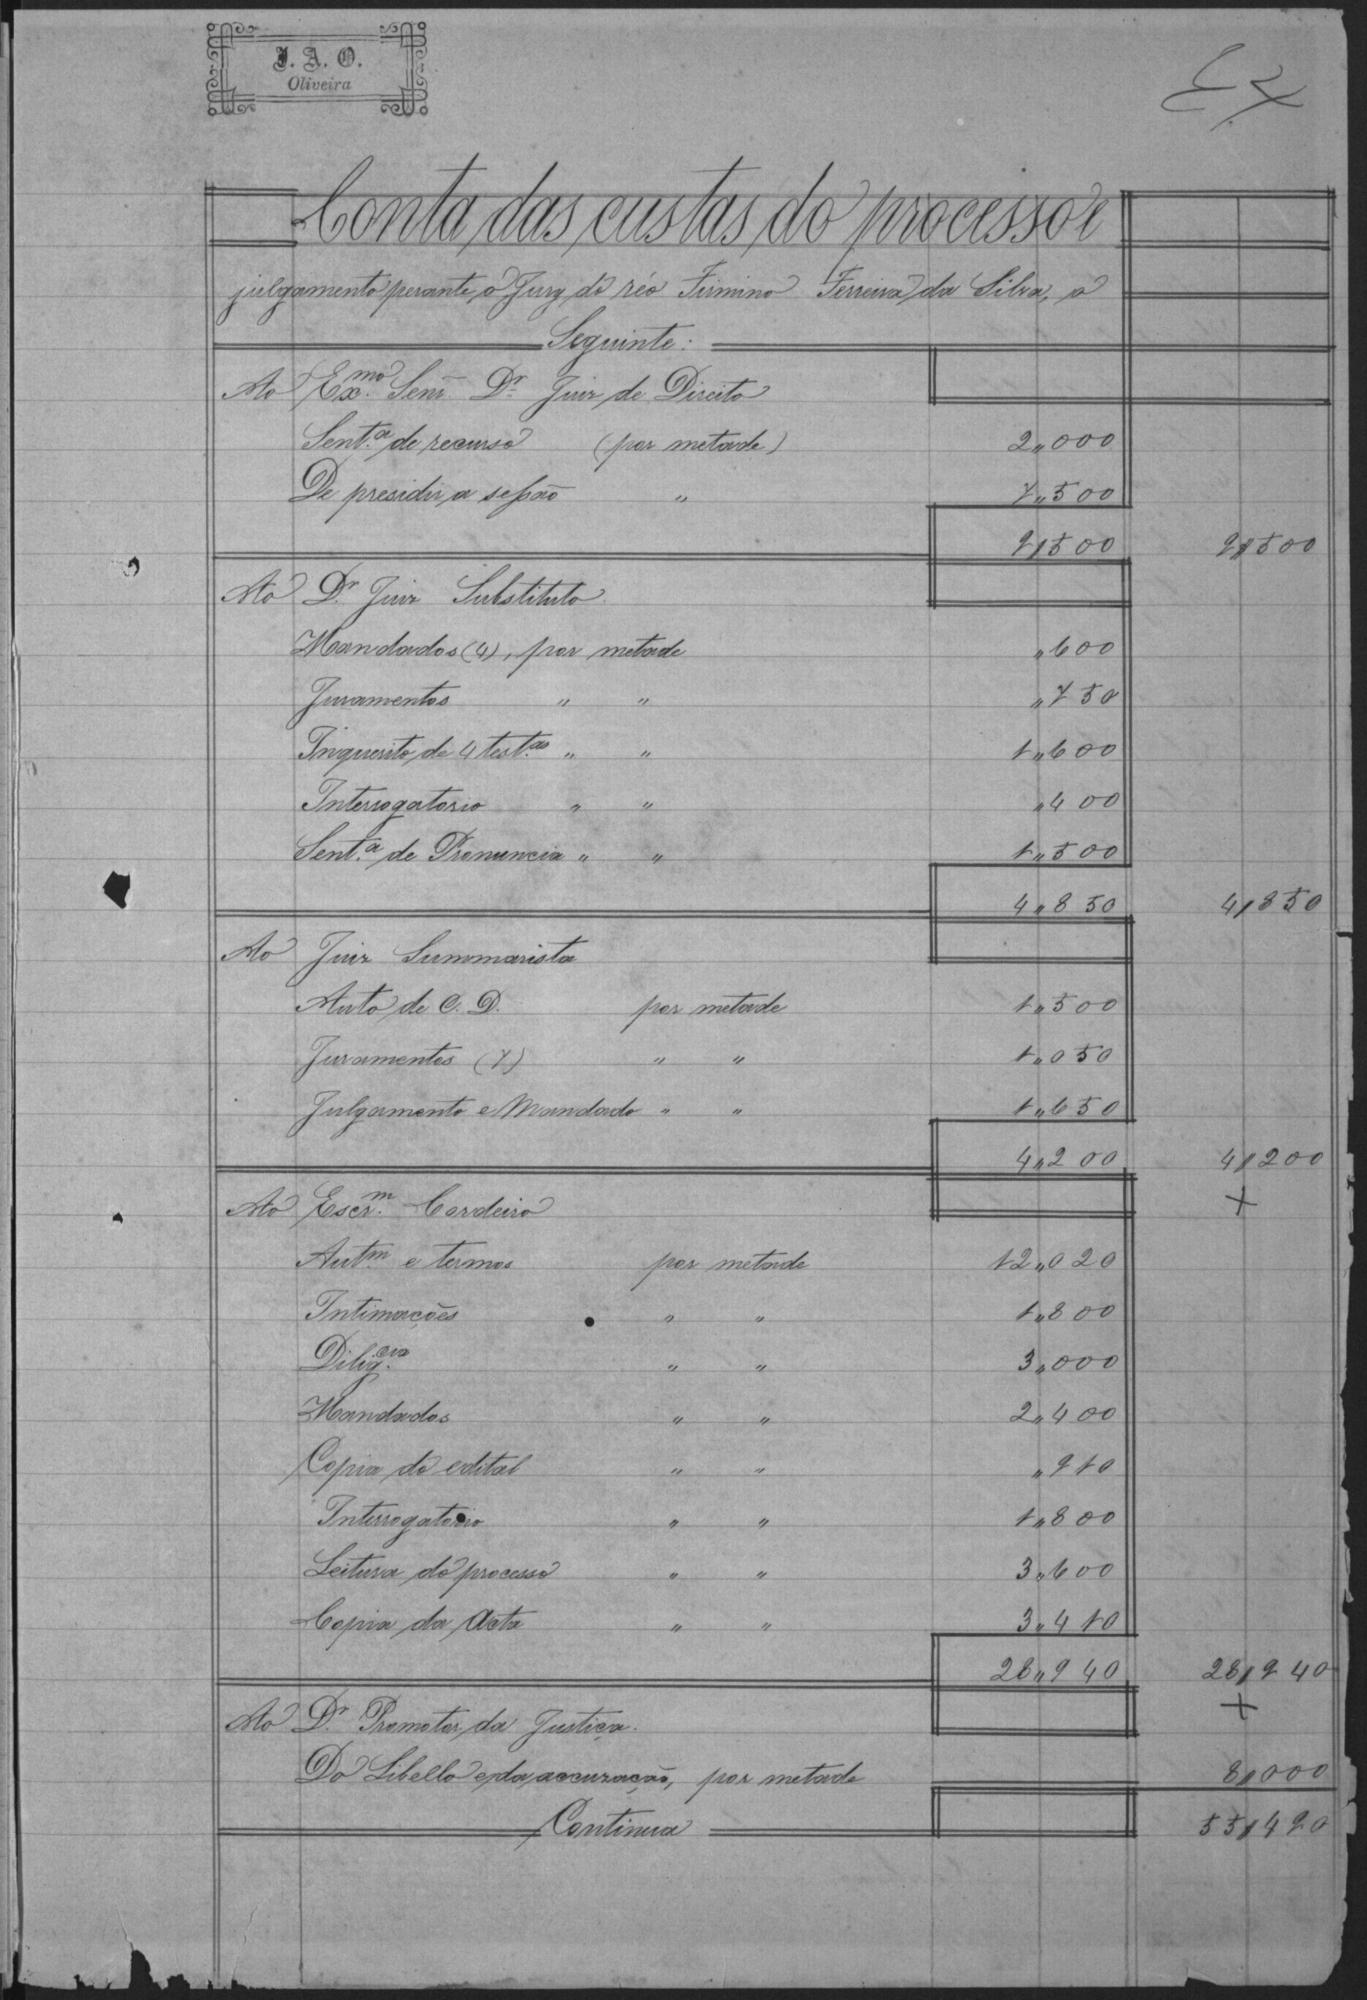 J. A. O.
Oliveira
Conta das custas do processo e
julgamento perante o Jury do réo Firmino Ferreira da Silva, o
Seguinte:
Ao Exmo. Senr. Dr. Juiz de Direito
Sent.a de recurso (por metade) 2,,000
De presidir a sessão " 7,,500
9,,500 9,,500
Ao Dr. Juiz Substituto
Mandados (4), por metade ,,600
Juramentos " " ,,750
Inquerito de 4 test.as " " 1,,600
Interrogatorio " " ,,400
Sent.a de Pronuncia " " 1,,500
4,,850 4,,850
Ao Juiz Summarista
Auto de C. D. por metade 1,,500
Juramentos (7) " " 1,,050
Julgamento e Mandado " " 1,,650
4,,200 4,,200
Ao Escr.m Cordeiro
Aut.m e termos por metade 12,,020
Intimações " " 1,,800
Dilig.cia " " 3,,000
Mandados " " 2,,400
Copia do edital " " ,,910
Interrogatorio " " 1,,800
Leitura do processo " " 3,,600
Copia da Acta " " 3,,410
28,,940 28,,940
Ao Dr. Promotor da Justiça.
Do Libello e da accuzação, por metade 8,,000
Continua 55,,490